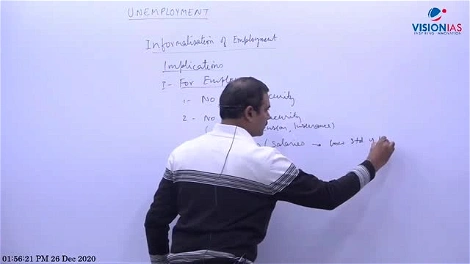 UNEMPLOYMENT
VISIONIAS
INSPIRING INNOVATION
Informalisation of Employment
Implications
I- For Emplo
1- No curity
2- No curity
sion, Insurance)
/ Salaries → low Std
01:56:21 PM 26 Dec 2020